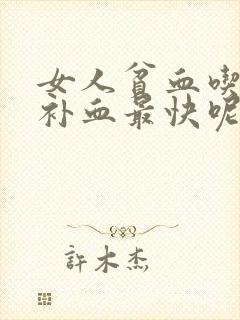 女人贫血喫
补血最快呢
許木杰